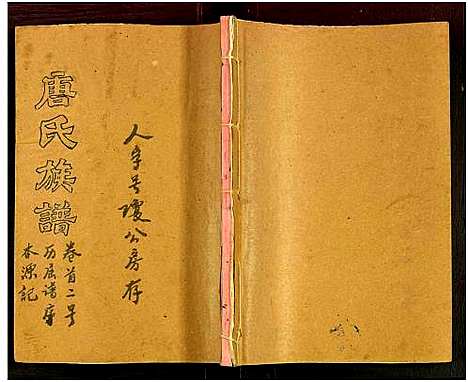 唐氏族譜
人字号瓊公房存
卷首二号
历届谱序
本源記